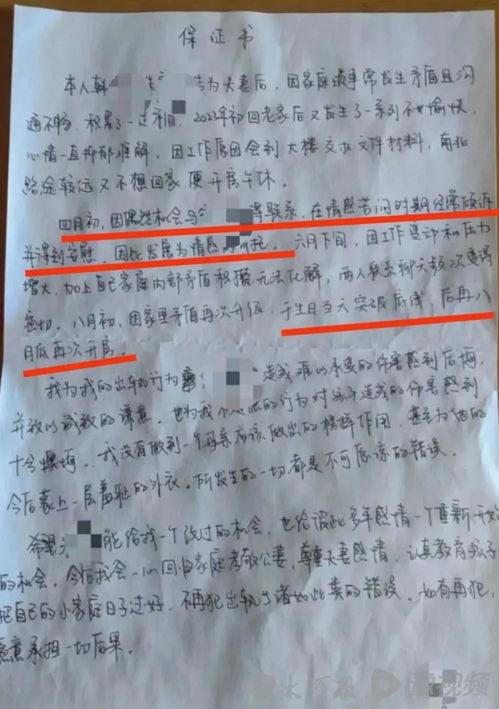 保证书
本人韩 与 结为夫妻后,因家庭琐事常发生矛盾且沟
通不畅,积累了一定矛盾。2023年初回老家后又发生了一系列不愉快,
心情一直抑郁难解,因工作原因会到大楼交办文件材料,南北
路途较远又不想回家便开房午休。
四月初,因偶然机会与 得联系,在情感苦闷时期经常倾诉
并得到安慰,因此发展为情感 。六月下旬,因工作变动和压力
增大,加上自己家庭内部矛盾积攒无法化解,两人 聊天频次变得
密切。八月初,因家里矛盾再次升级,于生日当天突破底线,后再八
月底再次开房。
我为我的出轨行为 造成难以承受的伤害感到后悔,
并致以诚致的谦意。也为我个人 的行为对孩子造成的伤害感到
十分懊悔,我没有做到一个母亲应该做出的榜样作用,甚至为他的
今后蒙上一层羞耻的外衣。所发生的一切都是不可原谅的错误。
希望 能给我一个改过的机会,也给彼此多年感情一个重新开始
的机会。今后我会一心回归家庭孝敬公婆,尊重夫妻感情,认真教育孩子
把自己的小家庭日子过好,不再犯出轨诸如此类的错误。如有再犯,
愿意承担一切后果。
大河报
视频